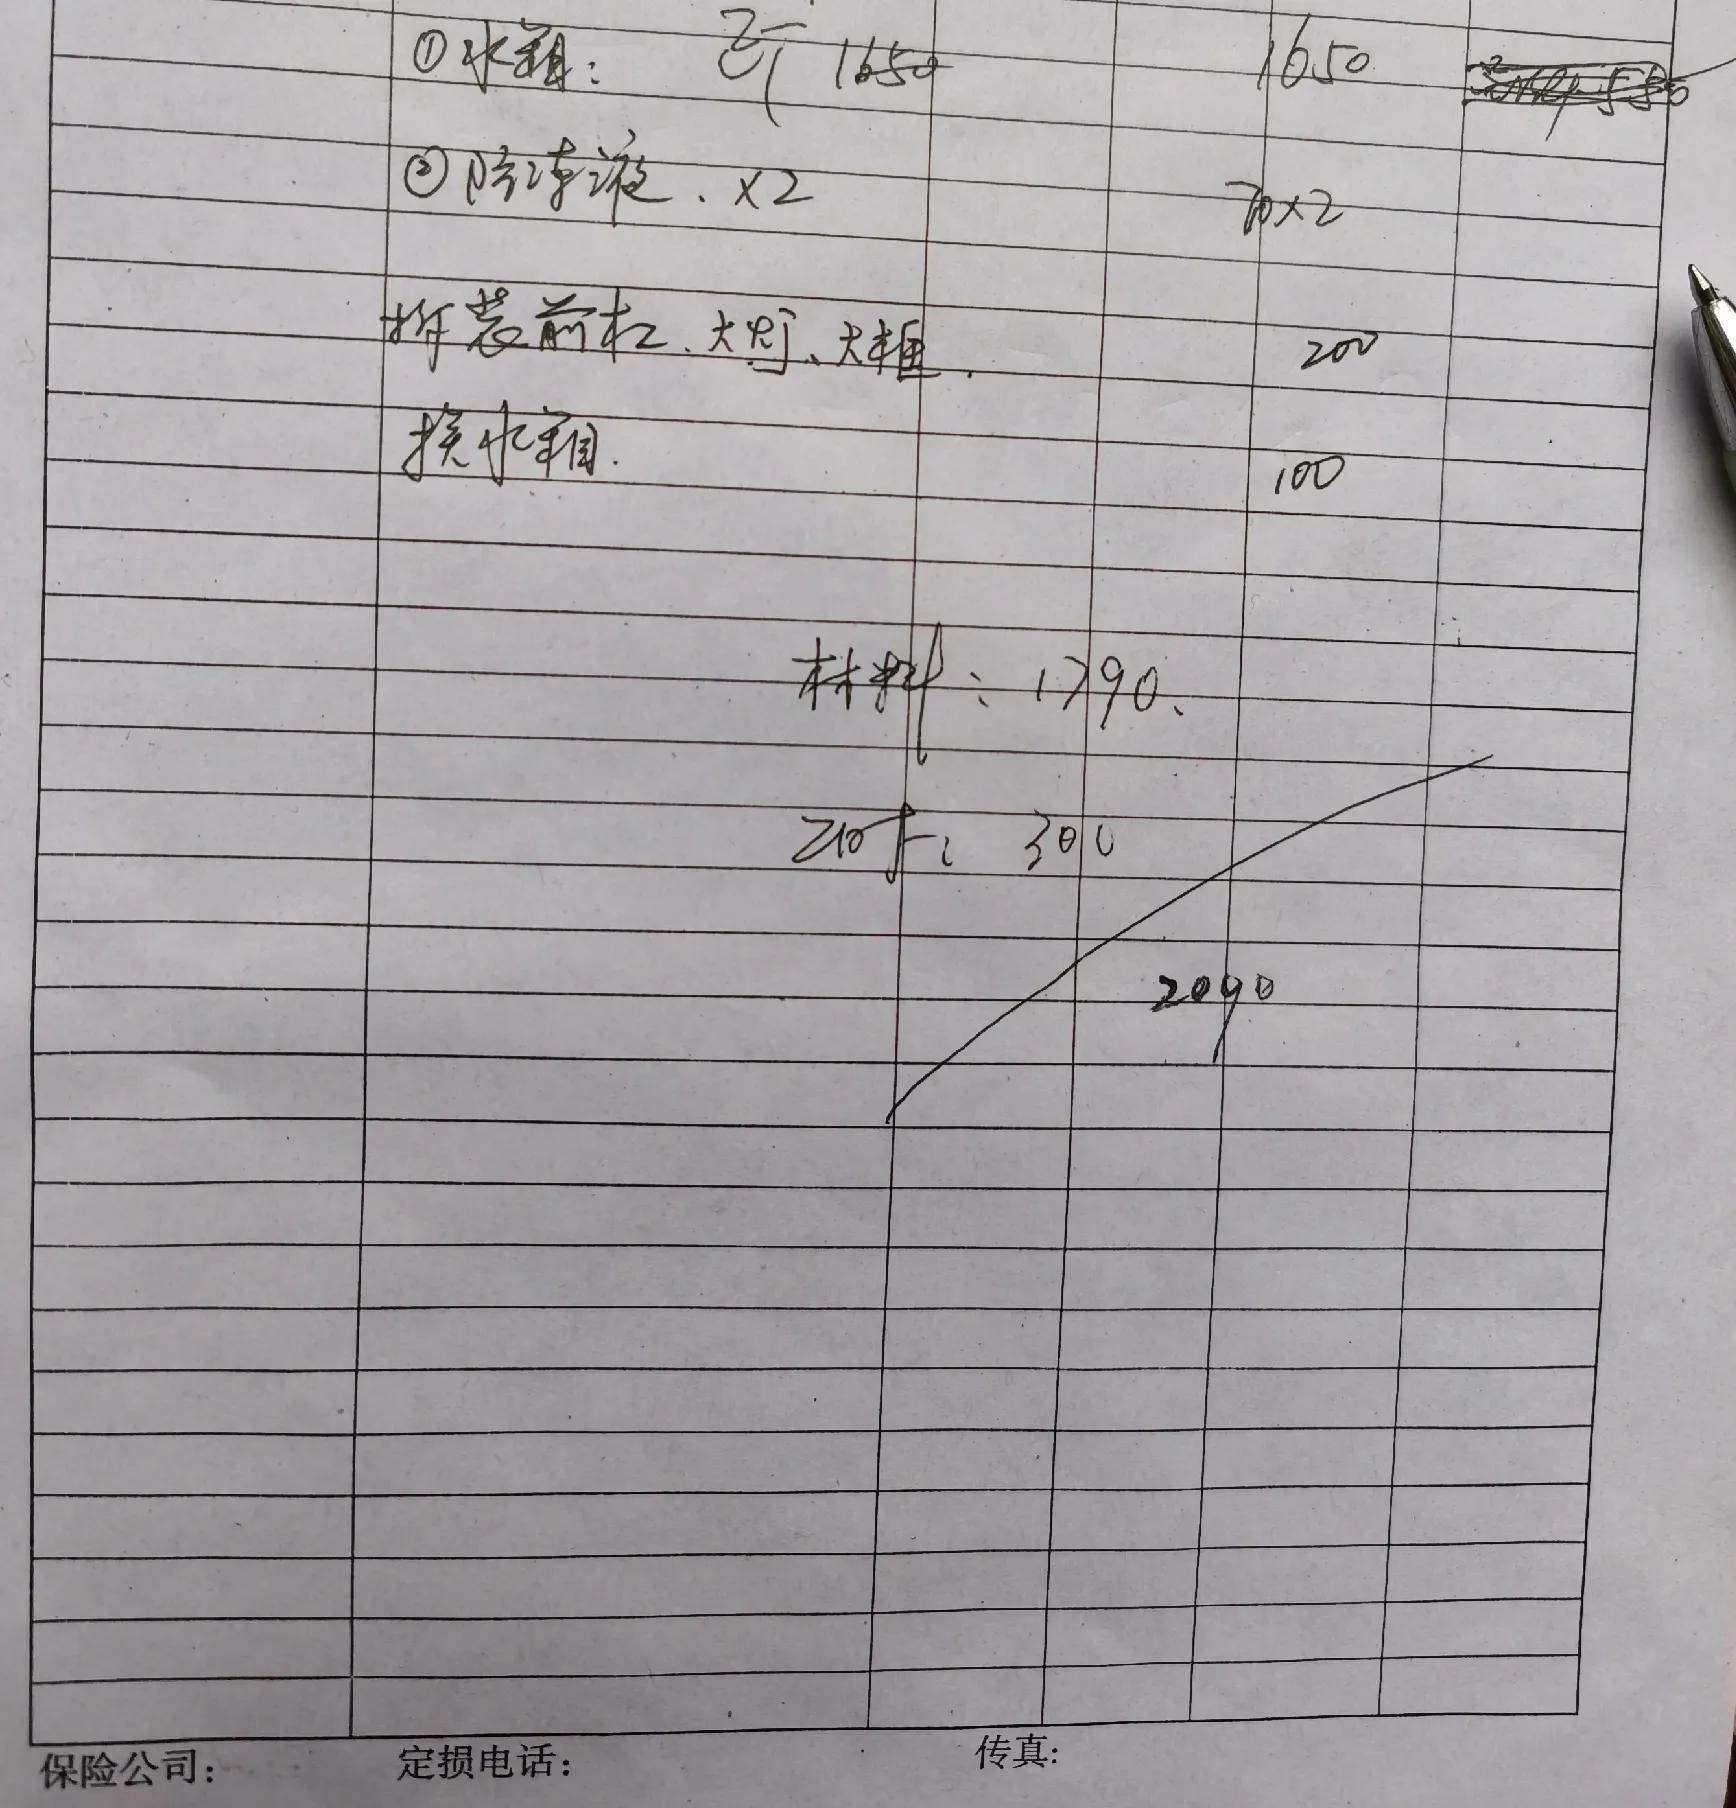 ①水箱: 1650 1650
②防冻液. ×2 70×2
拆装前杠、大灯、大框. 200
换水箱. 100
材料: 1790.
工时: 300
2090
保险公司: 定损电话: 传真: